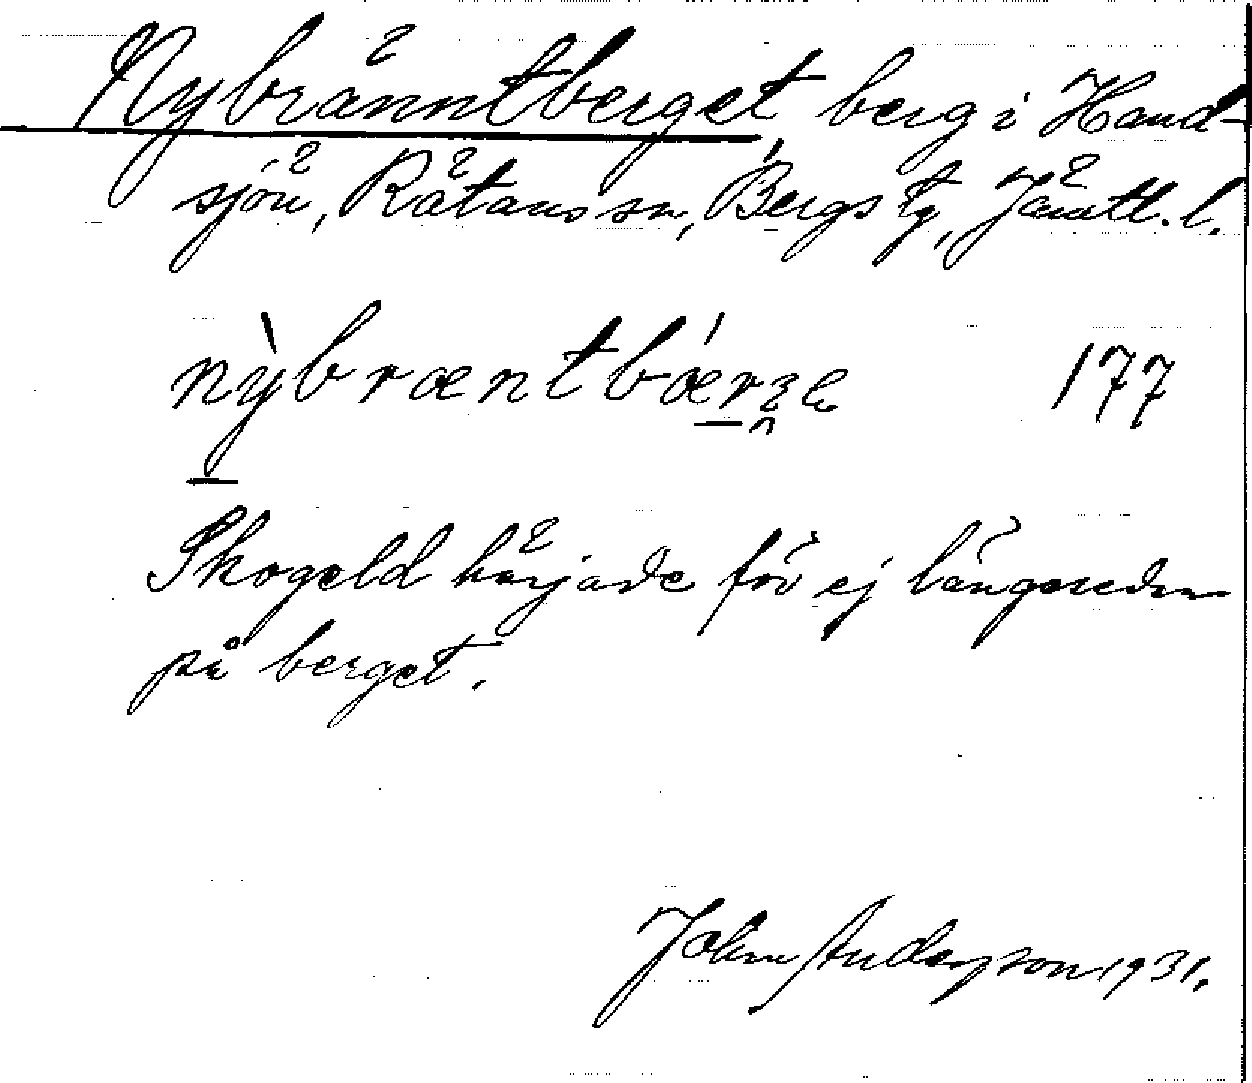 Nybränntberget, berg i Hand-
sjön, Rätans sn, Bergs tg, Jämtl. l.
nỳbræntbǽrʒe 177
Skogeld härjade för ej längesedan
på berget.
John Anderson 1931.